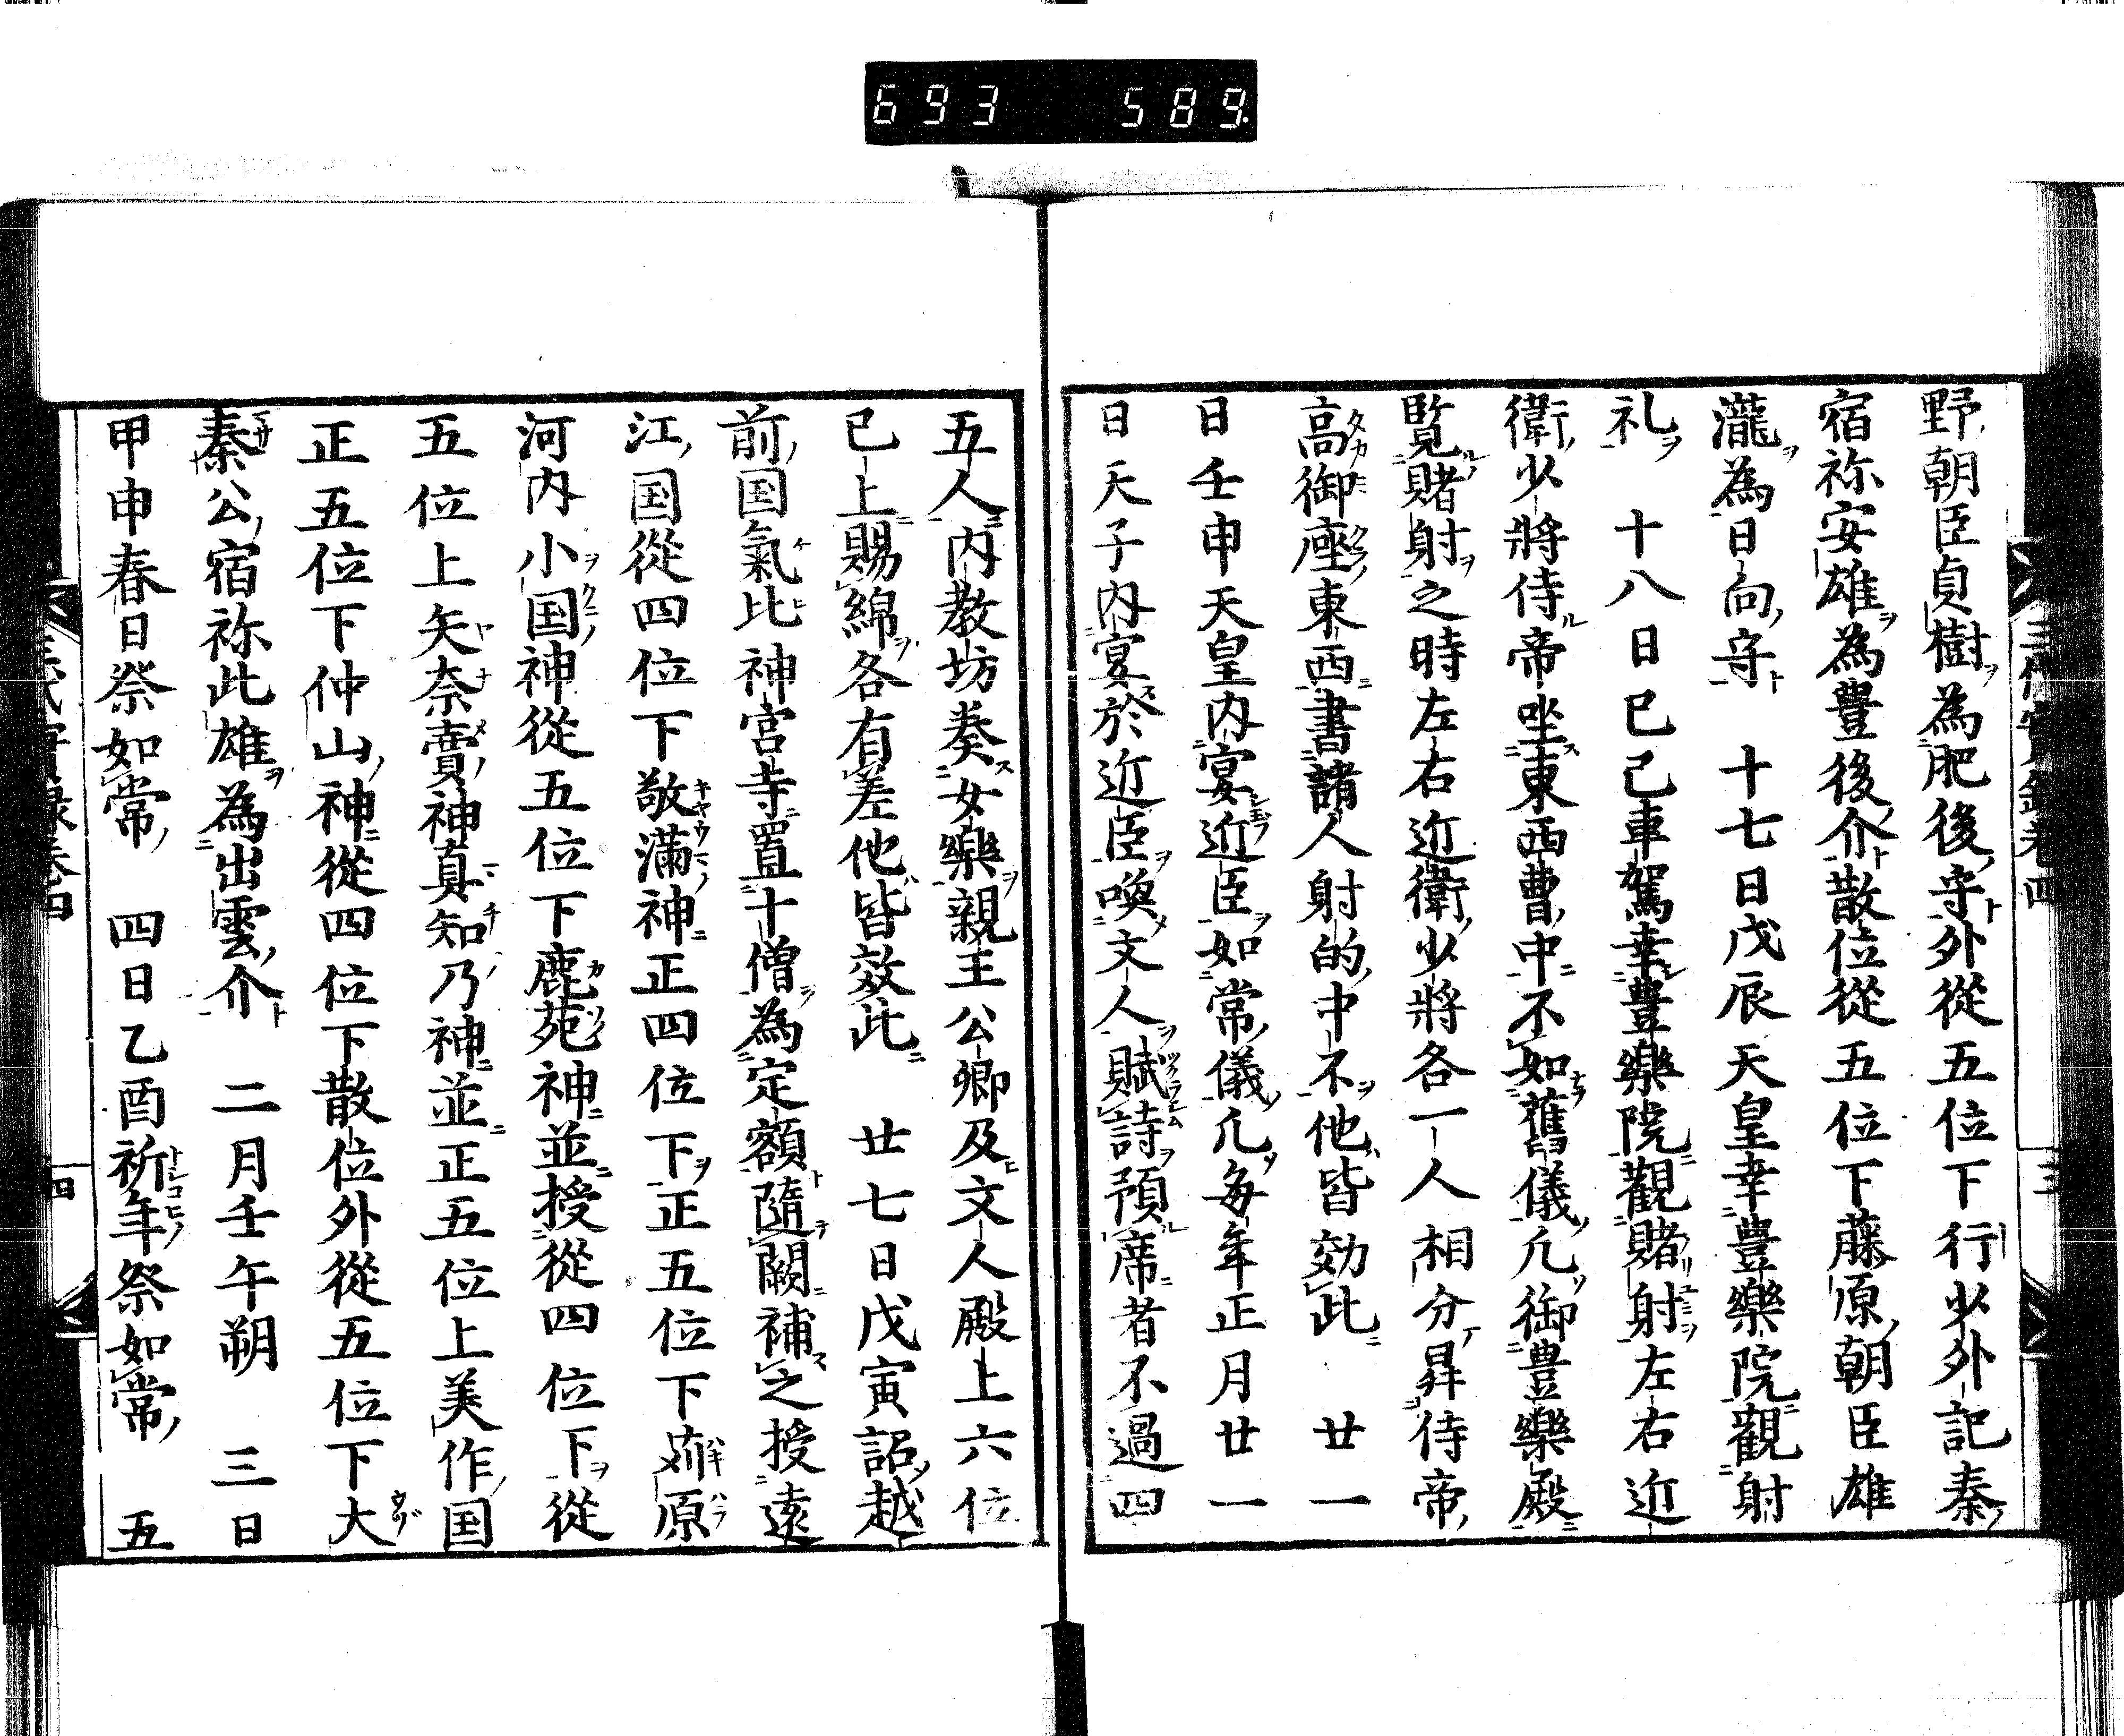 693 589.
野朝臣貞樹為肥後守外從五位下行少外記秦
宿祢安雄為豊後介散位從五位下藤原朝臣雄
瀧為日向守 十七日戊辰天皇幸豊樂院觀射
礼 十八日己巳車駕幸豊樂院觀賭射左右近
衛少將侍帝坐東西曹中不如舊儀凢御豊樂殿
覧賭射之時左右近衛少將各一人相分昇侍帝
高御座東西書諸人射的中不他皆効此 廿一
日壬申天皇内宴近臣如常儀凢毎年正月廿一
日天子内宴於近臣喚文人賦詩預席者不過四
五人内教坊奏女樂親王公卿及文人殿上六位
已上賜綿各有差他皆效此 廿七日戊寅詔越
前国氣比神宮寺置十僧為定額隨闕補之授遠
江国從四位下敬滿神正四位下正五位下䓶原
河内小国神從五位下鹿苑神並授從四位下從
五位上矢奈賣神真知乃神並正五位上美作国
正五位下仲山神從四位下散位外從五位下大
秦公宿祢此雄為出雲介 二月壬午朔 三日
甲申春日祭如常 四日乙酉祈年祭如常 五
三代實録巻四 三
三代實録巻四 四